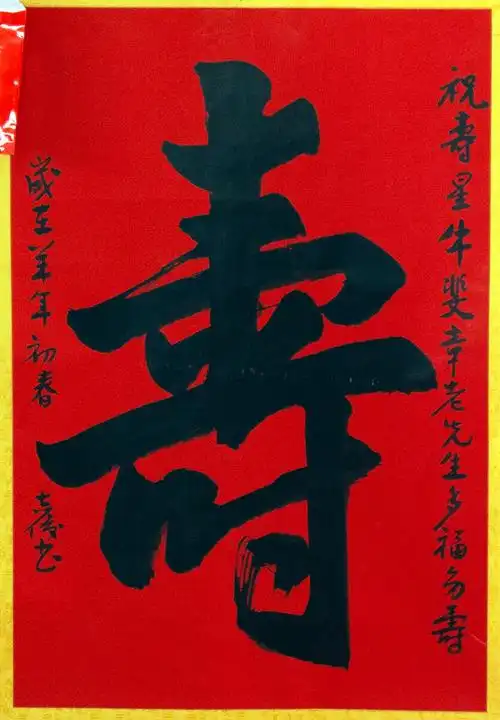 祝寿星牛斐章老先生多福多寿
壽
歲在羊年初春
书